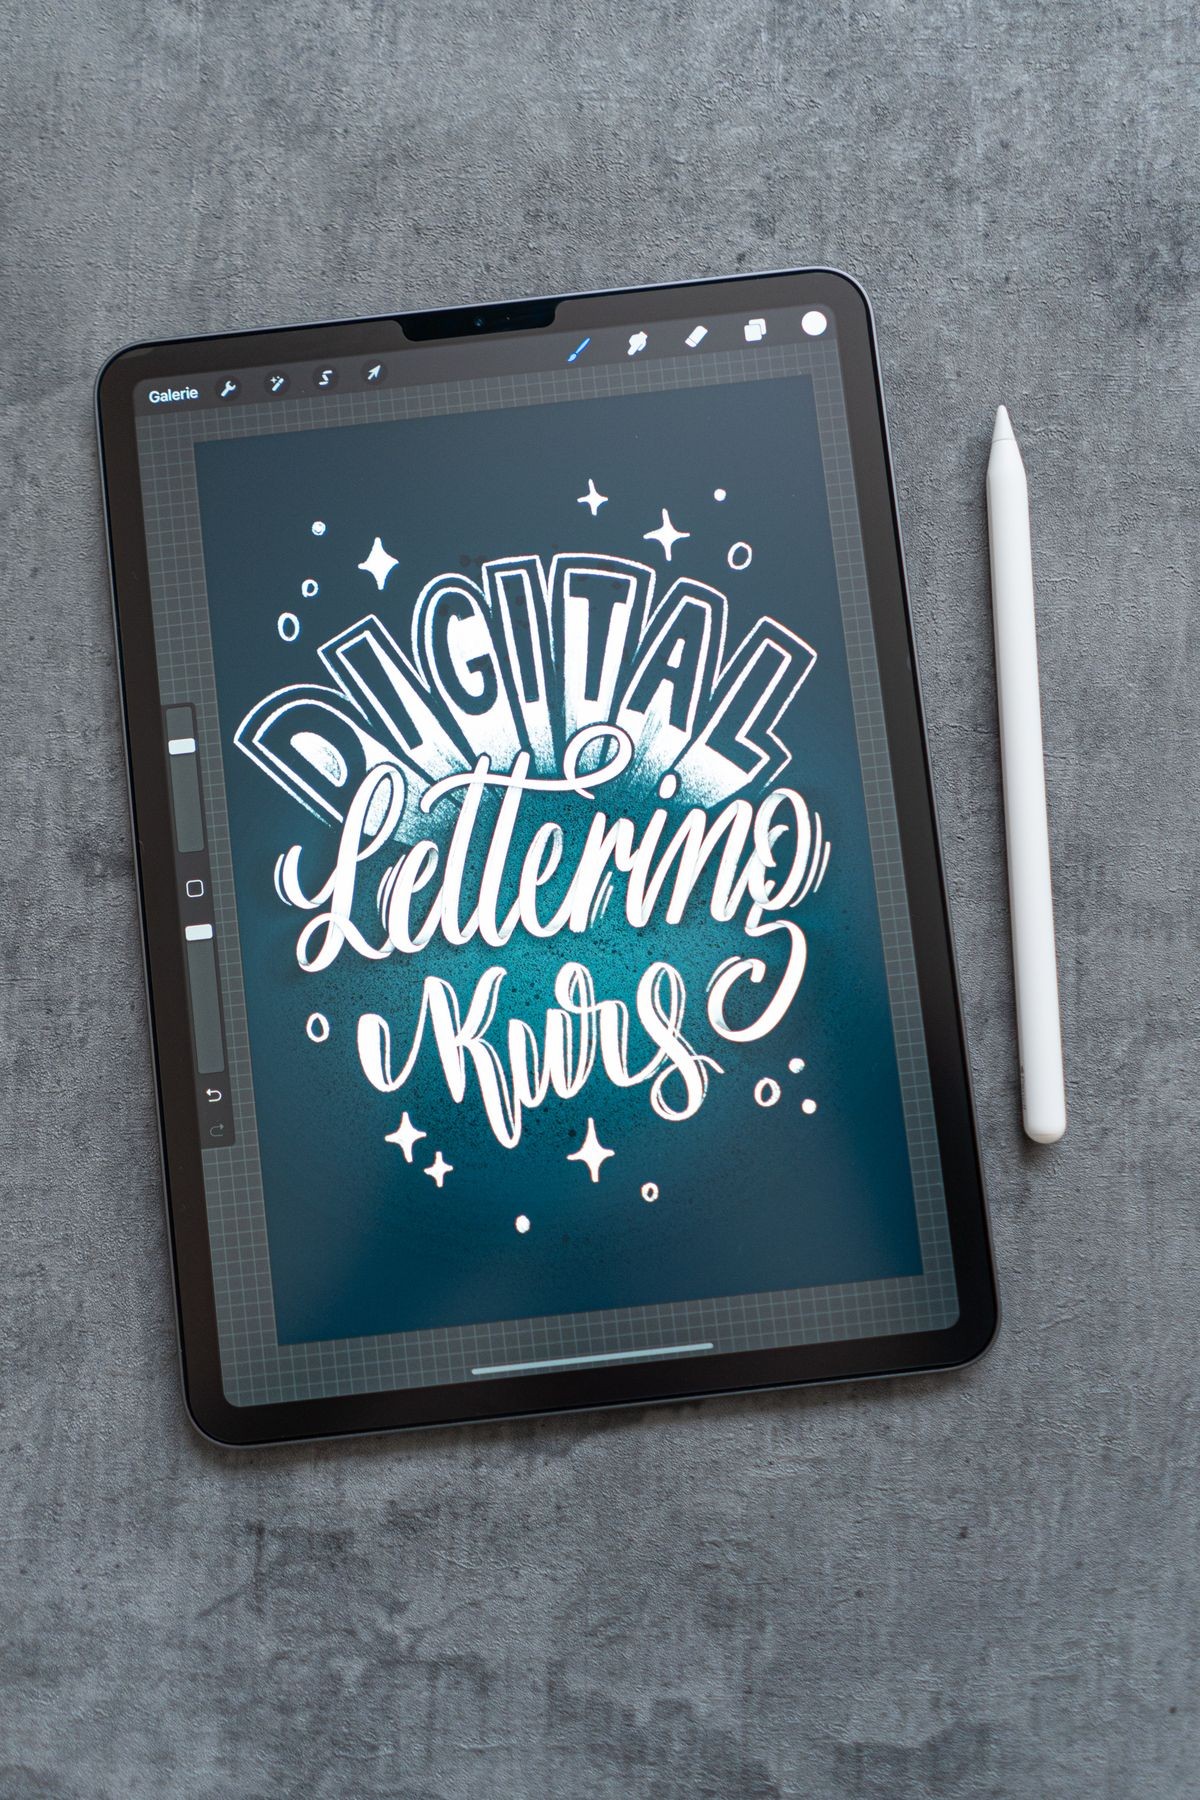 Galerie
DIGITAL
Lettering
Kurs